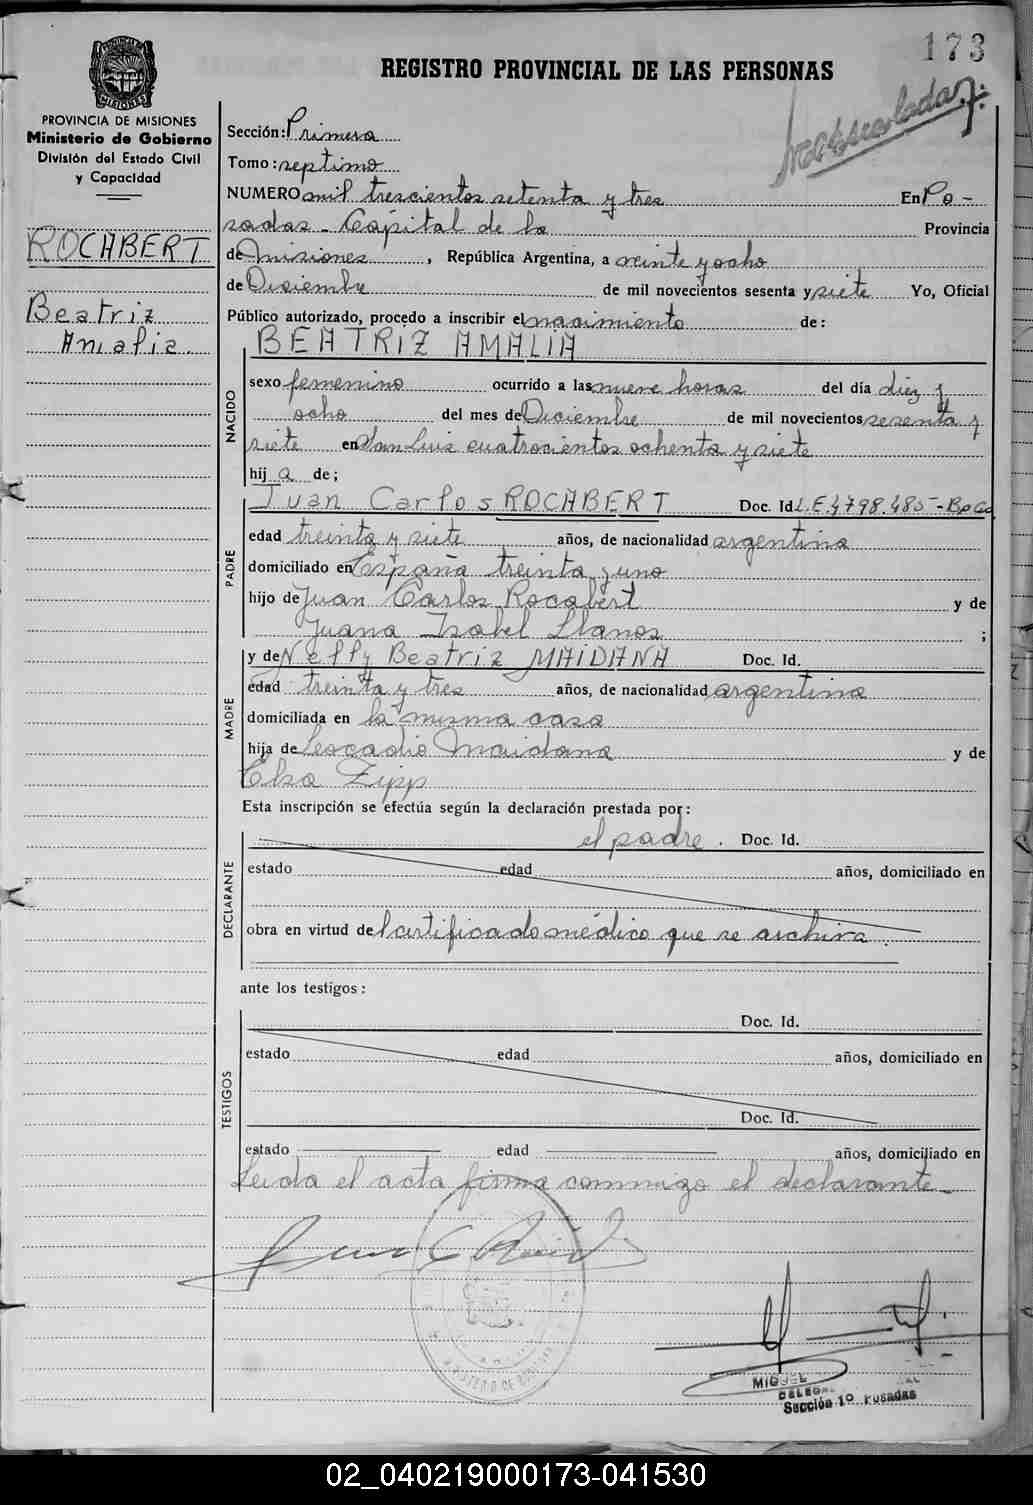 173
REGISTRO PROVINCIAL DE LAS PERSONAS
PROVINCIA DE MISIONES
Ministerio de Gobierno
División del Estado Civil
y Capacidad
ROCHBERT
Beatriz
Amalia.
Sección: Primera
Tomo: septimo
NUMERO mil trescientos setenta y tres En Po-
sadas - Capital de la Provincia
de Misiones, República Argentina, a veinte y ocho
de Diciembre de mil novecientos sesenta y siete Yo, Oficial
Público autorizado, procedo a inscribir el nacimiento de:
BEATRIZ AMALIA
NACIDO
sexo femenino ocurrido a las nueve horas del día diez y
ocho del mes de Diciembre de mil novecientos sesenta y
siete en San Luis cuatrocientos ochenta y siete
hija de;
PADRE
Juan Carlos ROCHBERT Doc. Id. L.E. 4798.485-
edad treinta y siete años, de nacionalidad argentina
domiciliado en España treinta y uno
hijo de Juan Carlos Rocabert y de
Juana Isabel Llanos;
MADRE
y de Nelly Beatriz MAIDANA Doc. Id.
edad treinta y tres años, de nacionalidad argentina
domiciliada en la misma casa
hija de Leocadio Maidana y de
Elsa Zipp
Esta inscripción se efectúa según la declaración prestada por:
DECLARANTE
el padre. Doc. Id.
estado edad años, domiciliado en
obra en virtud de certificado médico que se archiva.
ante los testigos:
TESTIGOS
Doc. Id.
estado edad años, domiciliado en
Doc. Id.
estado edad años, domiciliado en
Leida el acta firma conmigo el declarante-
MIGUEL
Sección 1º Posadas
02_040219000173-041530